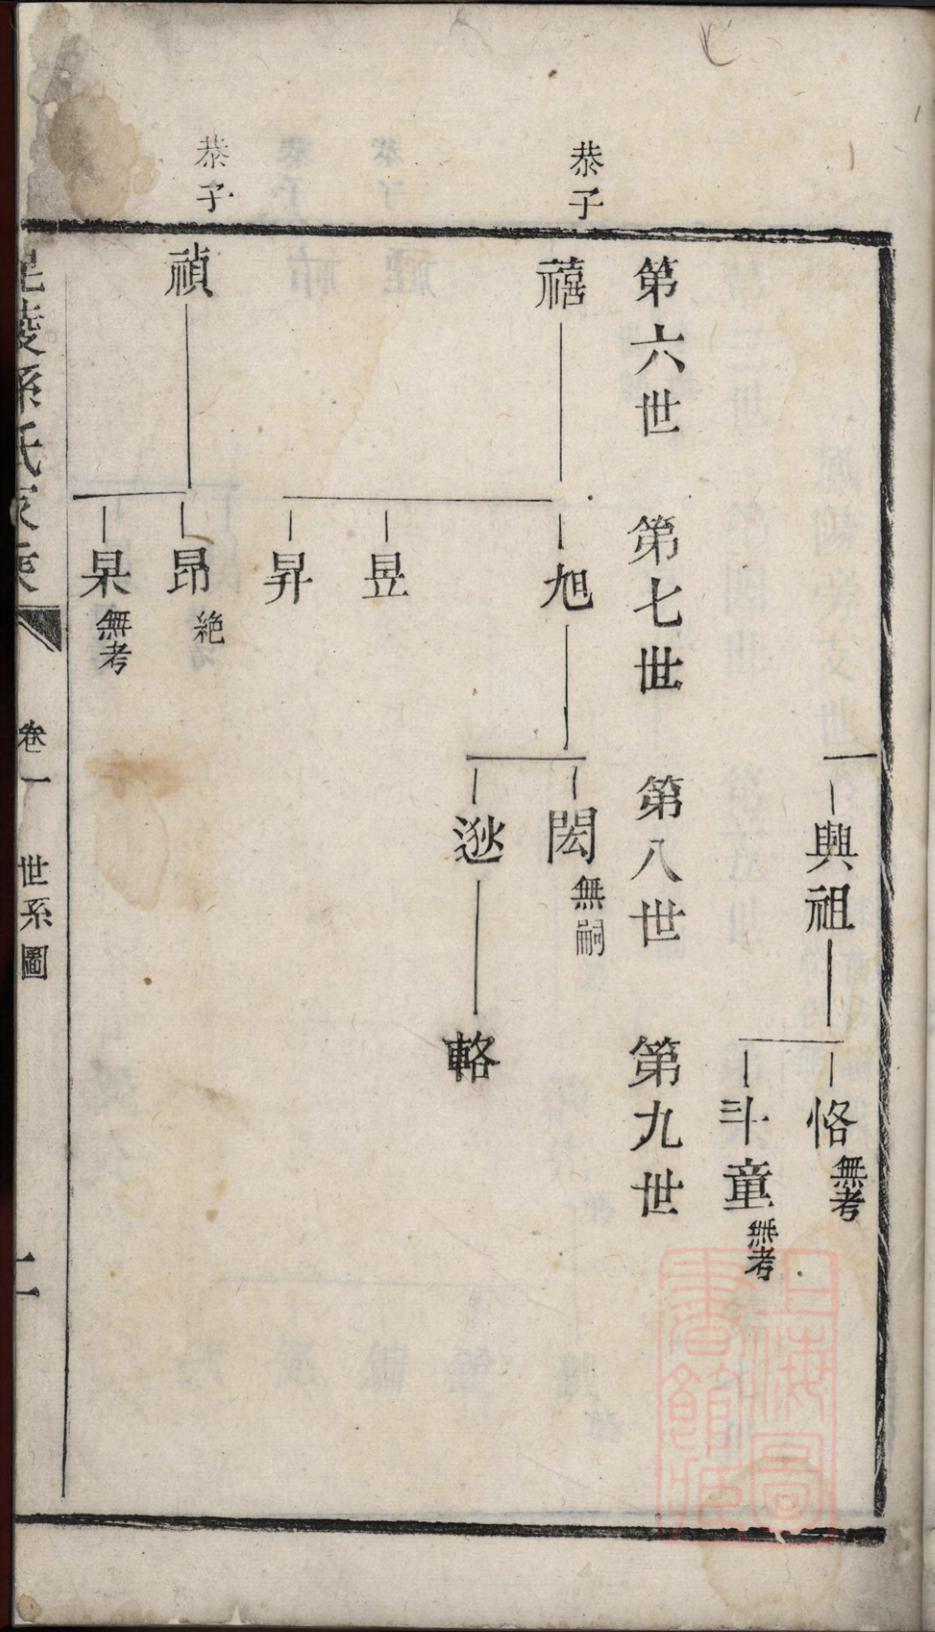 興祖
恪 無考
斗童 無考
第六世
第七世
第八世
第九世
恭子
禧
旭
閎 無嗣
逖
輅
昱
昇
恭子
禎
昂 絶
杲 無考
毘陵孫氏家乘
卷一
世系圖
二
上海圖
書館藏